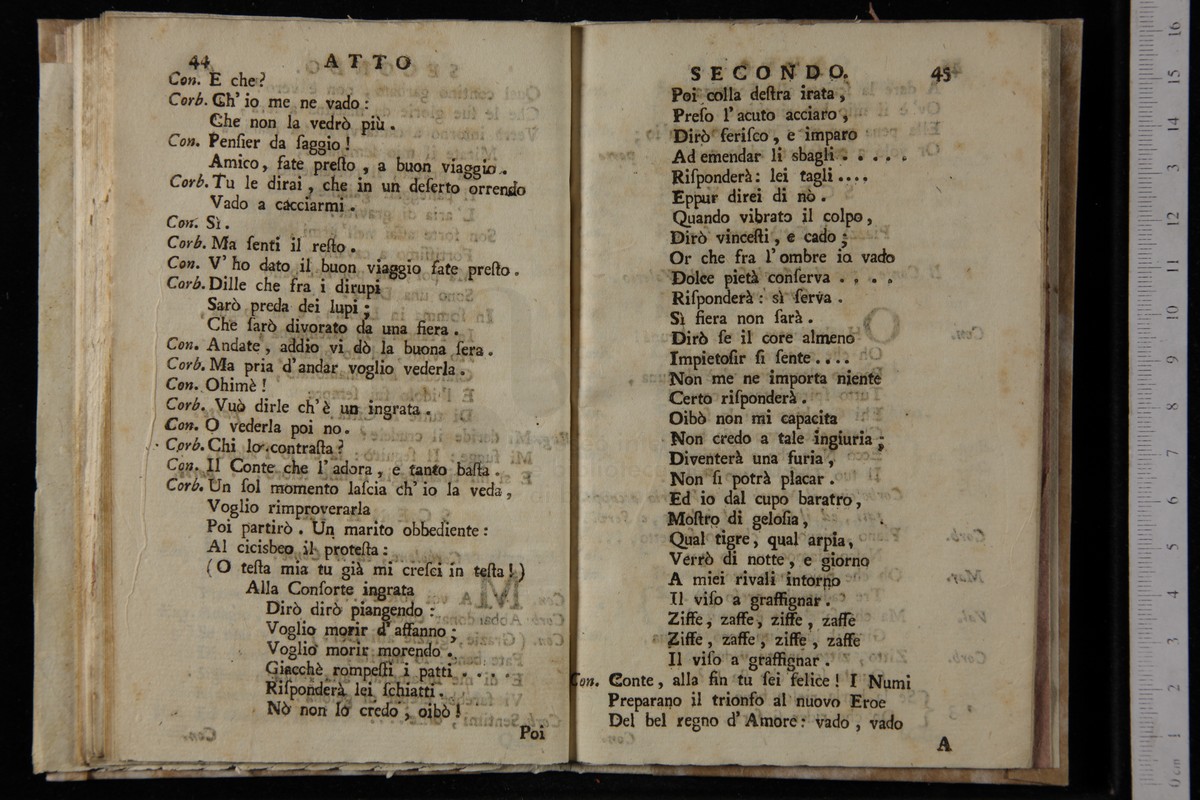 44 ATTO
Con. E che?
Corb. Ch' io me ne vado:
Che non la vedrò più.
Con. Penſier da ſaggio!
Amico, fate preſto, a buon viaggio.
Corb. Tu le dirai, che in un deſerto orrendo
Vado a cacciarmi.
Con. Sì.
Corb. Ma ſenti il reſto.
Con. V' ho dato il buon viaggio fate preſto.
Corb. Dille che fra i dirupi
Sarò preda dei lupi;
Che ſarò divorato da una fiera.
Con. Andate, addio vi dò la buona ſera.
Corb. Ma pria d'andar voglio vederla.
Con. Ohimè!
Corb. Vuò dirle ch'è un ingrata.
Con. O vederla poi no.
Corb. Chi lo contraſta?
Con. Il Conte che l'adora, e tanto baſta.
Corb. Un ſol momento laſcia ch' io la veda,
Voglio rimproverarla
Poi partirò. Un marito obbediente:
Al cicisbeo il proteſta:
(O teſta mia tu già mi creſci in teſta!)
Alla Conſorte ingrata
Dirò dirò piangendo:
Voglio morir d'affanno;
Voglio morir morendo.
Giacchè rompeſti i patti....
Riſponderà lei ſchiatti.
Nò non lo credo, oibò!
Poi
SECONDO. 45
Poi colla deſtra irata,
Preſo l'acuto acciaro,
Dirò feriſco, e imparo
Ad emendar li sbagli.....
Riſponderà: lei tagli....
Eppur direi di nò.
Quando vibrato il colpo,
Dirò vinceſti, e cado;
Or che fra l'ombre io vado
Dolce pietà conſerva....
Riſponderà: sì ſerva.
Sì fiera non ſarà.
Dirò ſe il core almeno
Impietoſir ſi ſente....
Non me ne importa niente
Certo riſponderà.
Oibò non mi capacita
Non credo a tale ingiuria;
Diventerà una furia,
Non ſi potrà placar.
Ed io dal cupo baratro,
Moſtro di geloſia,
Qual tigre, qual arpia,
Verrò di notte, e giorno
A miei rivali intorno
Il viſo a graffignar.
Ziffe, zaffe, ziffe, zaffe
Ziffe, zaffe, ziffe, zaffe
Il viſo a graffignar.
Con. Conte, alla fin tu ſei felice! I Numi
Preparano il trionfo al nuovo Eroe
Del bel regno d'Amore: vado, vado
A